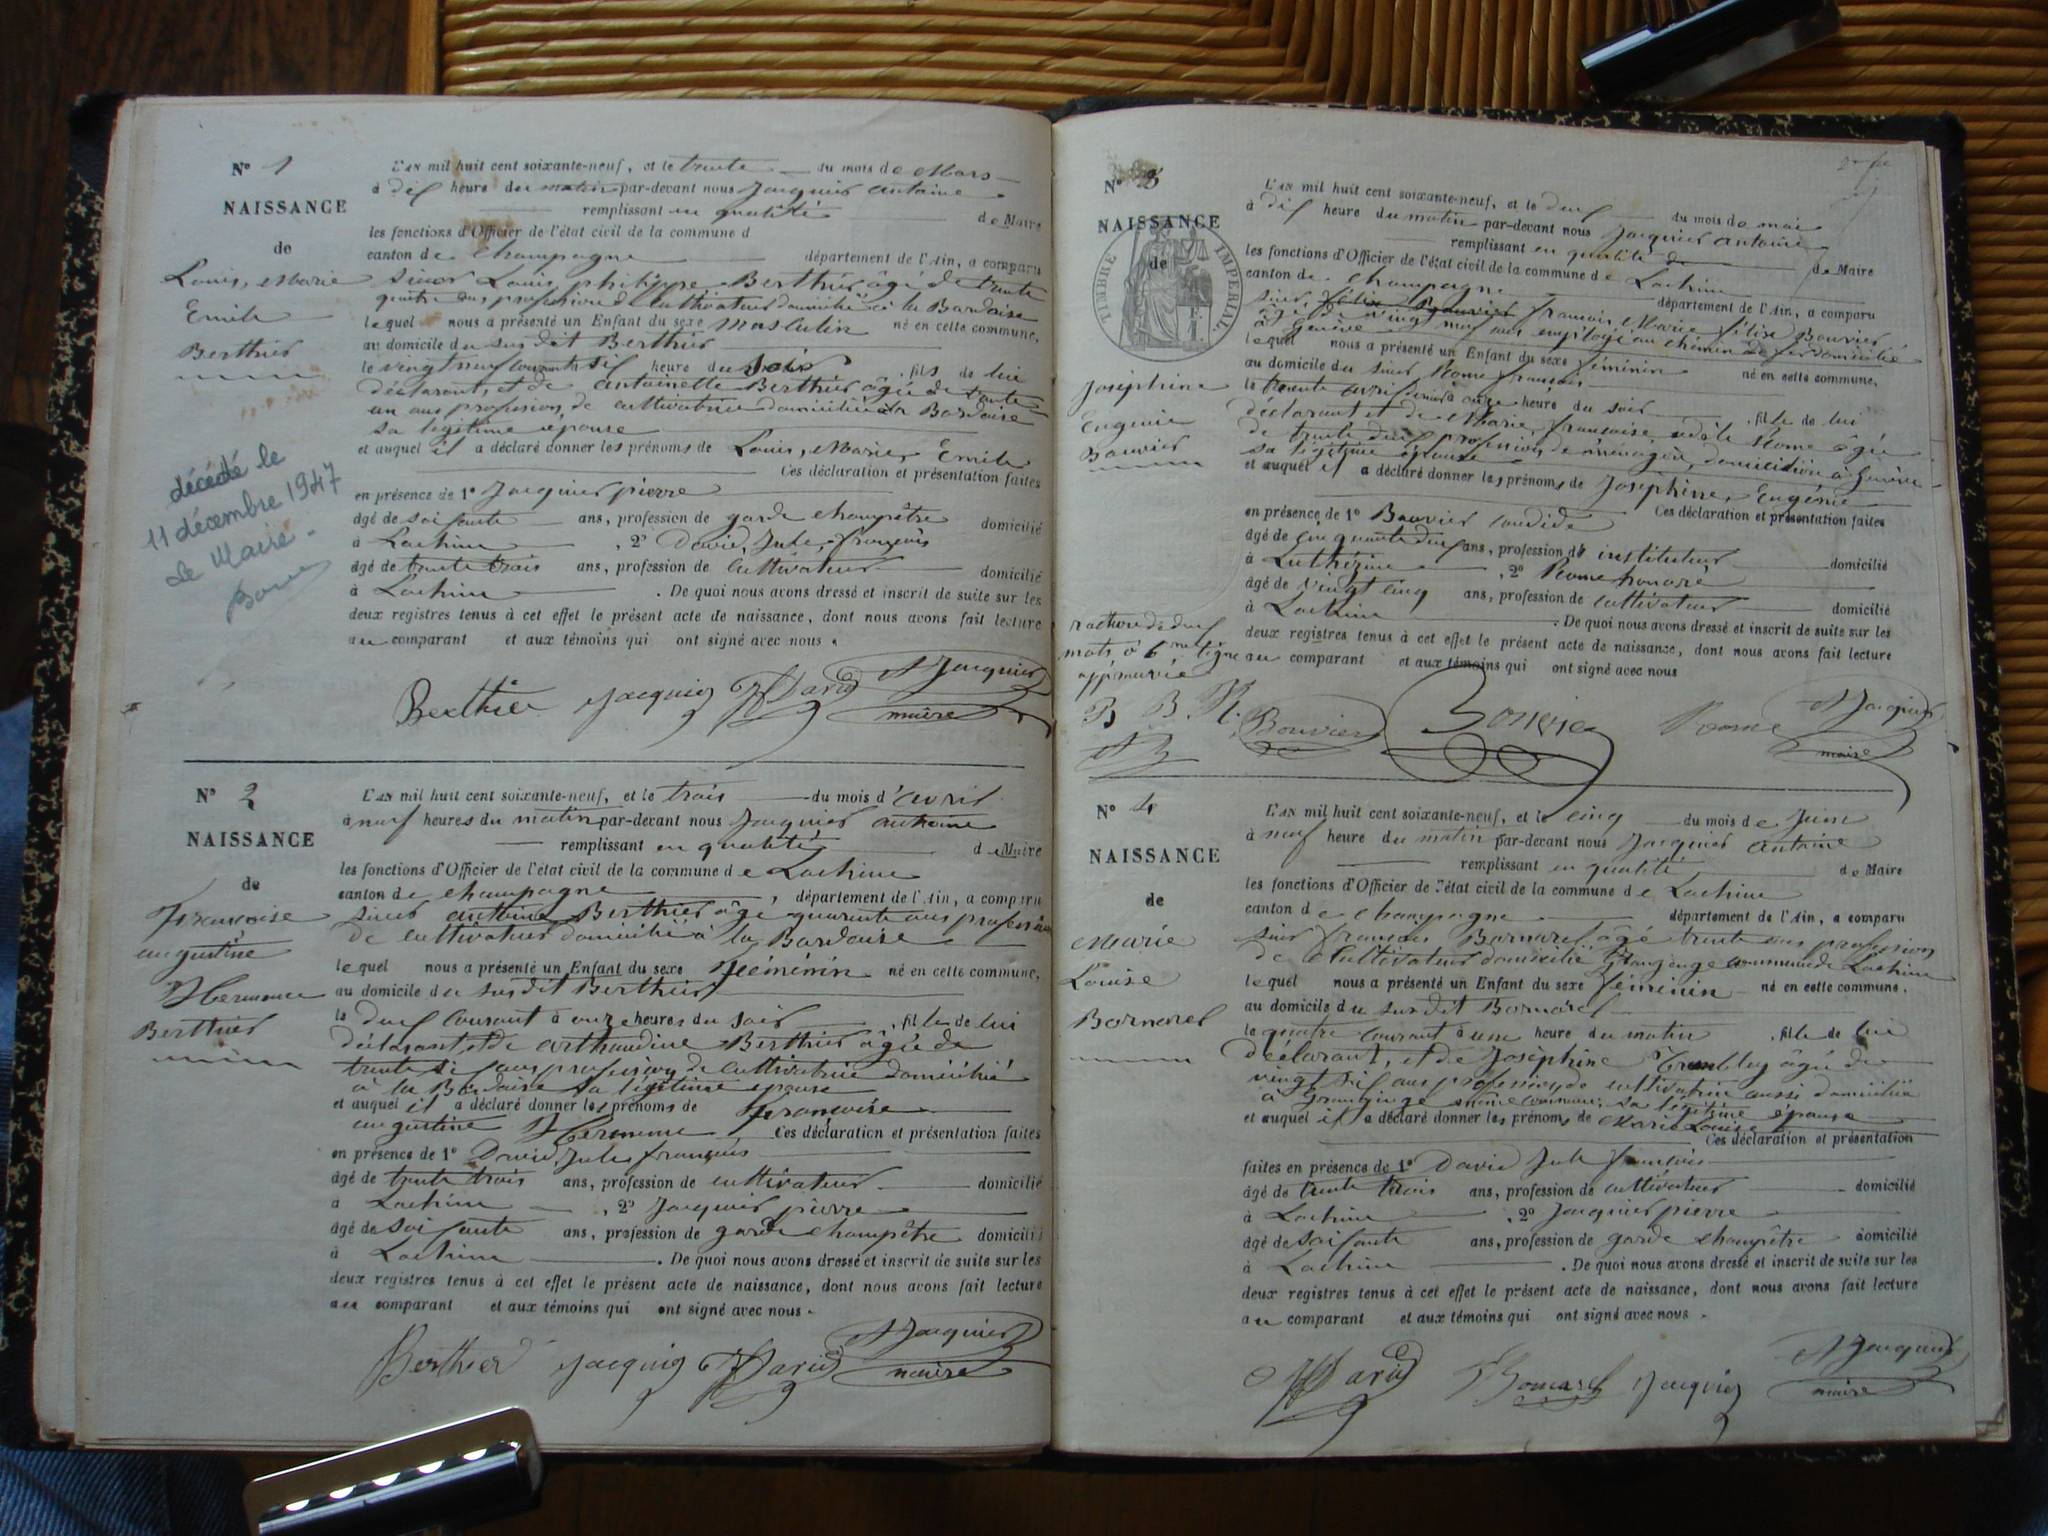 N° 1
NAISSANCE
de
Louis, Marie
Emile
Berthier
décédé le
11 décembre 1947
Le Maire -
L'AN mil huit cent soixante-neuf, et le trente du mois de Mars
à dix heure du matin par-devant nous Jacquier antoine
remplissant en qualité de Maire
les fonctions d'Officier de l'état civil de la commune d
canton de champagne département de l'Ain, a comparu
sieur Louis philippe Berthier âgé de trente
quatre ans profession de cultivateur domicilié à la Bardaise
lequel nous a présenté un Enfant du sexe masculin né en cette commune,
au domicile du susdit Berthier
le vingt neuf courant à six heure du soir, fils de lui
déclarant, et de antoinette Berthier âgée de trente
un ans profession de cultivatrice domiciliée à la Bardaise
sa légitime épouse
et auquel il a déclaré donner les prénoms de Louis, Marie, Emile
Ces déclaration et présentation faites
en présence de 1° Jacquier pierre
âgé de soixante ans, profession de garde champêtre domicilié
à Lochieu, 2° David, Jule, françois
âgé de trente trois ans, profession de cultivateur domicilié
à Lochieu. De quoi nous avons dressé et inscrit de suite sur les
deux registres tenus à cet effet le présent acte de naissance, dont nous avons fait lecture
au comparant et aux témoins qui ont signé avec nous.
Berthier Jacquier JF David A Jacquier
maire
N° 2
NAISSANCE
de
Françoise
augustine
Hermance
Berthier
L'AN mil huit cent soixante-neuf, et le trois du mois d'avril
à neuf heures du matin par-devant nous Jacquier antoine
remplissant en qualité de Maire
les fonctions d'Officier de l'état civil de la commune de Lochieu
canton de champagne, département de l'Ain, a comparu
sieur antoine Berthier âgé quarante ans profession
de cultivateur domicilié à la Bardaise
lequel nous a présenté un Enfant du sexe Féminin né en cette commune,
au domicile du susdit Berthier
le deux courant à onze heures du soir, fille de lui
déclarant, et de Berthier âgée de
trente six ans profession de cultivatrice domicilié
à la Bardaise sa légitime épouse
et auquel il a déclaré donner les prénoms de Françoise
augustine Hermance Ces déclaration et présentation faites
en présence de 1° David, Jules françois
âgé de trente trois ans, profession de cultivateur domicilié
à Lochieu, 2° Jacquier pierre
âgé de soixante ans, profession de garde champêtre domicilié
à Lochieu. De quoi nous avons dressé et inscrit de suite sur les
deux registres tenus à cet effet le présent acte de naissance, dont nous avons fait lecture
au comparant et aux témoins qui ont signé avec nous.
Berthier Jacquier JF David A Jacquier
maire
N° 3
NAISSANCE
de
TIMBRE IMPERIAL
Joséphine
Eugénie
Bouvier
rature de deux
mots à 6me ligne
approuvée
B B. R.
L'AN mil huit cent soixante-neuf, et le deux du mois de mai
à dix heure du matin par-devant nous Jacquier antoine
remplissant en qualité de Maire
les fonctions d'Officier de l'état civil de la commune de Lochieu
canton de champagne département de l'Ain, a comparu
sieur félix Bouvier françois Marie félix Bouvier
âgé de vingt neuf ans employé au chemin de fer domicilié
à Genève
lequel nous a présenté un Enfant du sexe féminin né en cette commune,
au domicile du sieur Rome françois
le trente avril dernier à onze heure du soir, fille de lui
déclarant et de Marie, françoise Rome âgée
de trente deux profession de ménagère, domicilié à Genève
sa légitime épouse
et auquel il a déclaré donner les prénoms de Joséphine, Eugénie
Ces déclaration et présentation faites
en présence de 1° Bouvier candide
âgé de cinquante deux ans, profession de instituteur domicilié
à Luthézieu, 2° Rome honoré
âgé de vingt cinq ans, profession de cultivateur domicilié
à Lochieu. De quoi nous avons dressé et inscrit de suite sur les
deux registres tenus à cet effet le présent acte de naissance, dont nous avons fait lecture
au comparant et aux témoins qui ont signé avec nous
Bouvier Bouvier Rome A Jacquier
maire
N° 4
NAISSANCE
de
Marie
Louise
Bornarel
L'AN mil huit cent soixante-neuf, et le cinq du mois de Juin
à neuf heure du matin par-devant nous Jacquier antoine
remplissant en qualité de Maire
les fonctions d'Officier de l'état civil de la commune de Lochieu
canton de champagne département de l'Ain, a comparu
sieur françois Bornarel âgé trente ans profession
de cultivateur domicilié commune de Lochieu
lequel nous a présenté un Enfant du sexe féminin né en cette commune,
au domicile du susdit Bornarel
le quatre courant à une heure du matin, fille de lui
déclarant, et de Joséphine âgée de
vingt six ans profession de cultivatrice aussi domicilié
à même commune, sa légitime épouse
et auquel il a déclaré donner les prénoms de Marie Louise
Ces déclaration et présentation
faites en présence de 1° David Jule françois
âgé de trente trois ans, profession de cultivateur domicilié
à Lochieu, 2° Jacquier pierre
âgé de soixante ans, profession de garde champêtre domicilié
à Lochieu. De quoi nous avons dressé et inscrit de suite sur les
deux registres tenus à cet effet le présent acte de naissance, dont nous avons fait lecture
au comparant et aux témoins qui ont signé avec nous.
JF David F Bornarel Jacquier A Jacquier
maire